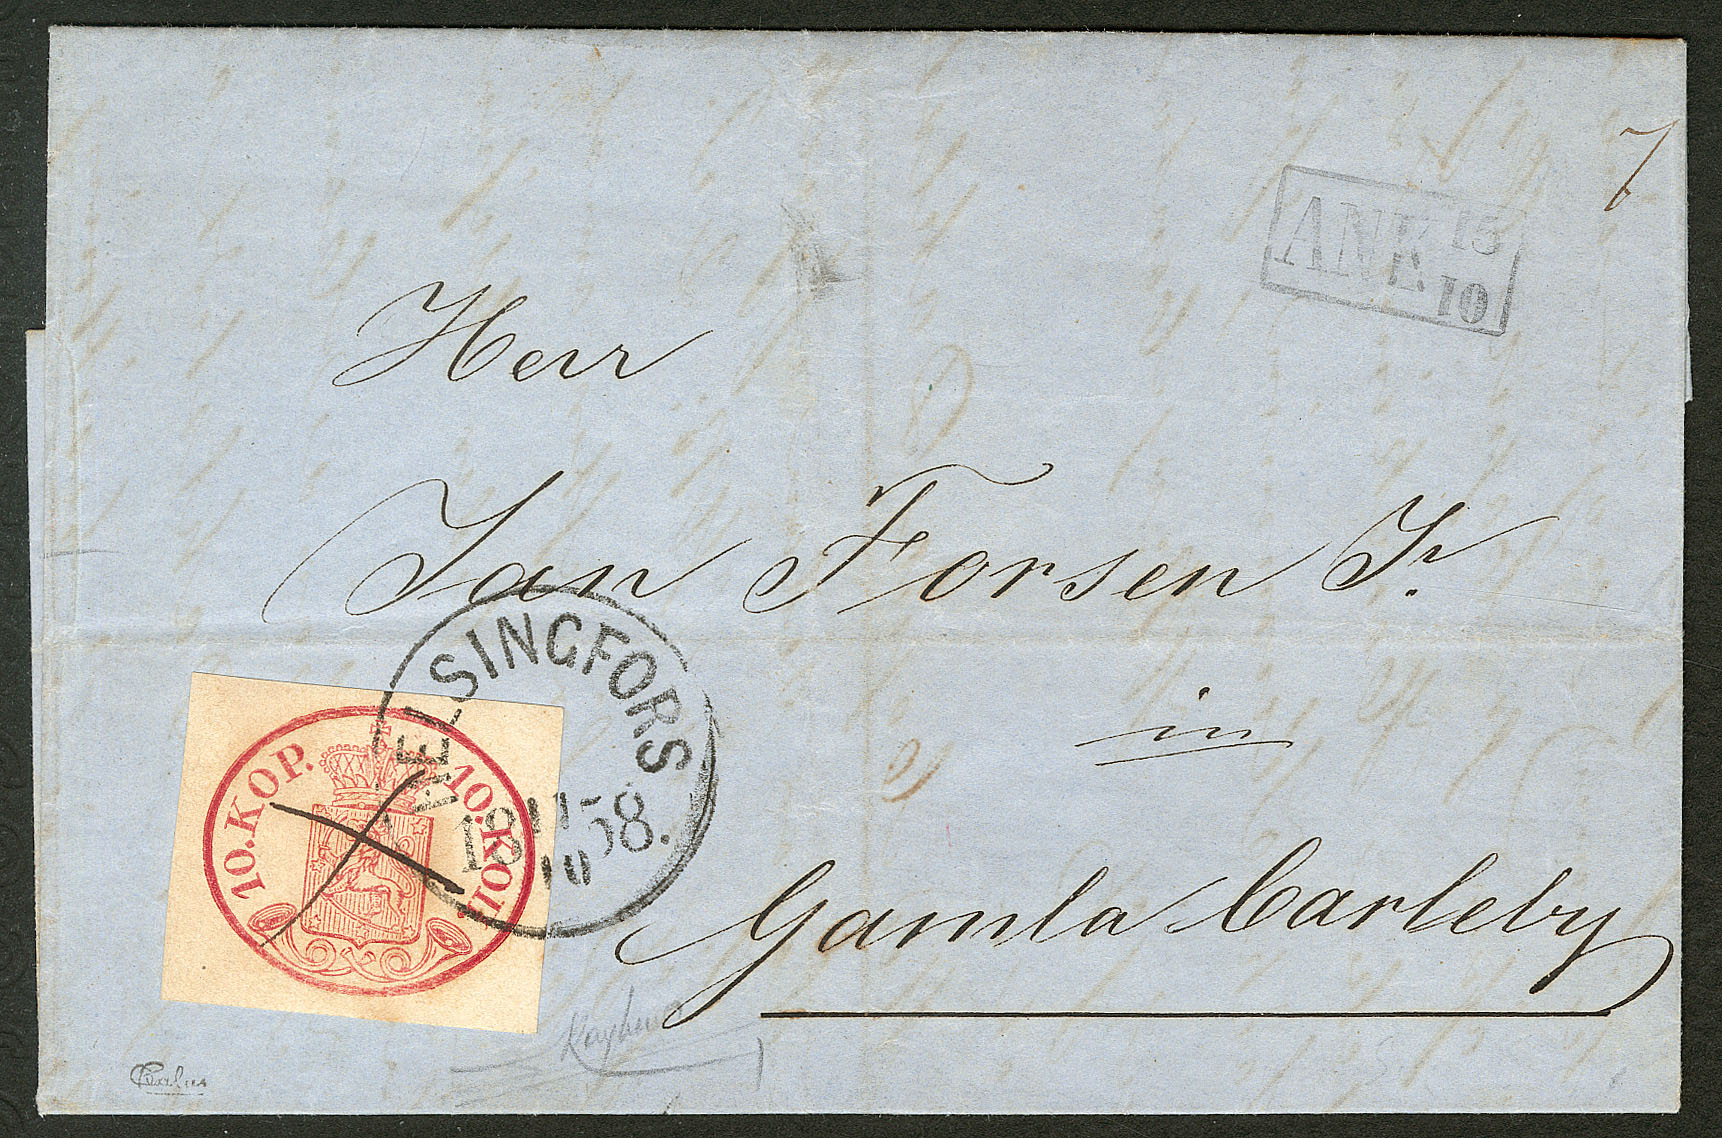 7
ANK 15
10
Herr
Jan Forsen Jr.
in
Gamla Carleby
HELSINGFORS
18 11 58.
10
10. KOP. 10. КОП.